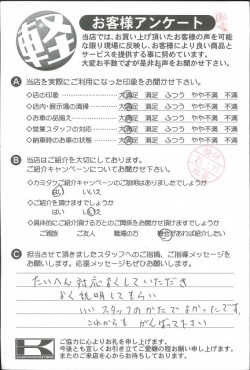 軽
お客様アンケート
当店では、お買い上げ頂いたお客様の声を可能
な限り現場に反映し、お客様により良い商品と
サービスを提供する事に努めています。
大変お手数ですが是非お声をお聞かせ下さい。
A 当店を実際にご利用になった印象をお聞かせ下さい。
◇店の印象 大満足 満足 ふつう やや不満 不満
◇店内・展示場の清掃 大満足 満足 ふつう やや不満 不満
◇お車の品揃え 大満足 満足 ふつう やや不満 不満
◇営業スタッフの対応 大満足 満足 ふつう やや不満 不満
◇納車時のお車の状態 大満足 満足 ふつう やや不満 不満
B 当店はご紹介を大切にしております。
ご紹介キャンペーンについてお聞かせ下さい。
◇カミタケご紹介キャンペーンのご説明はありましたでしょうか
はい いいえ
◇ご紹介を頂けますでしょうか
はい いいえ
◇具体的にご紹介頂ける方とのご関係をお聞かせ頂けますでしょうか
ご親戚 ご友人 職場の方 時があれば紹介したい
C 担当させて頂きましたスタッフへのご指摘、ご指導メッセージを
お願いします。応援メッセージもぜひお願いします。
たいへん対応よくしていただき
よく説明してもらい
いいスタッフのかたでよかったです。
これからもがんばって下さい
ご協力に心よりお礼を申し上げます。
今後とも宜しくお引き立てご愛顧の程お願い申し上げます。
またのご来店を心からお待ちしております。